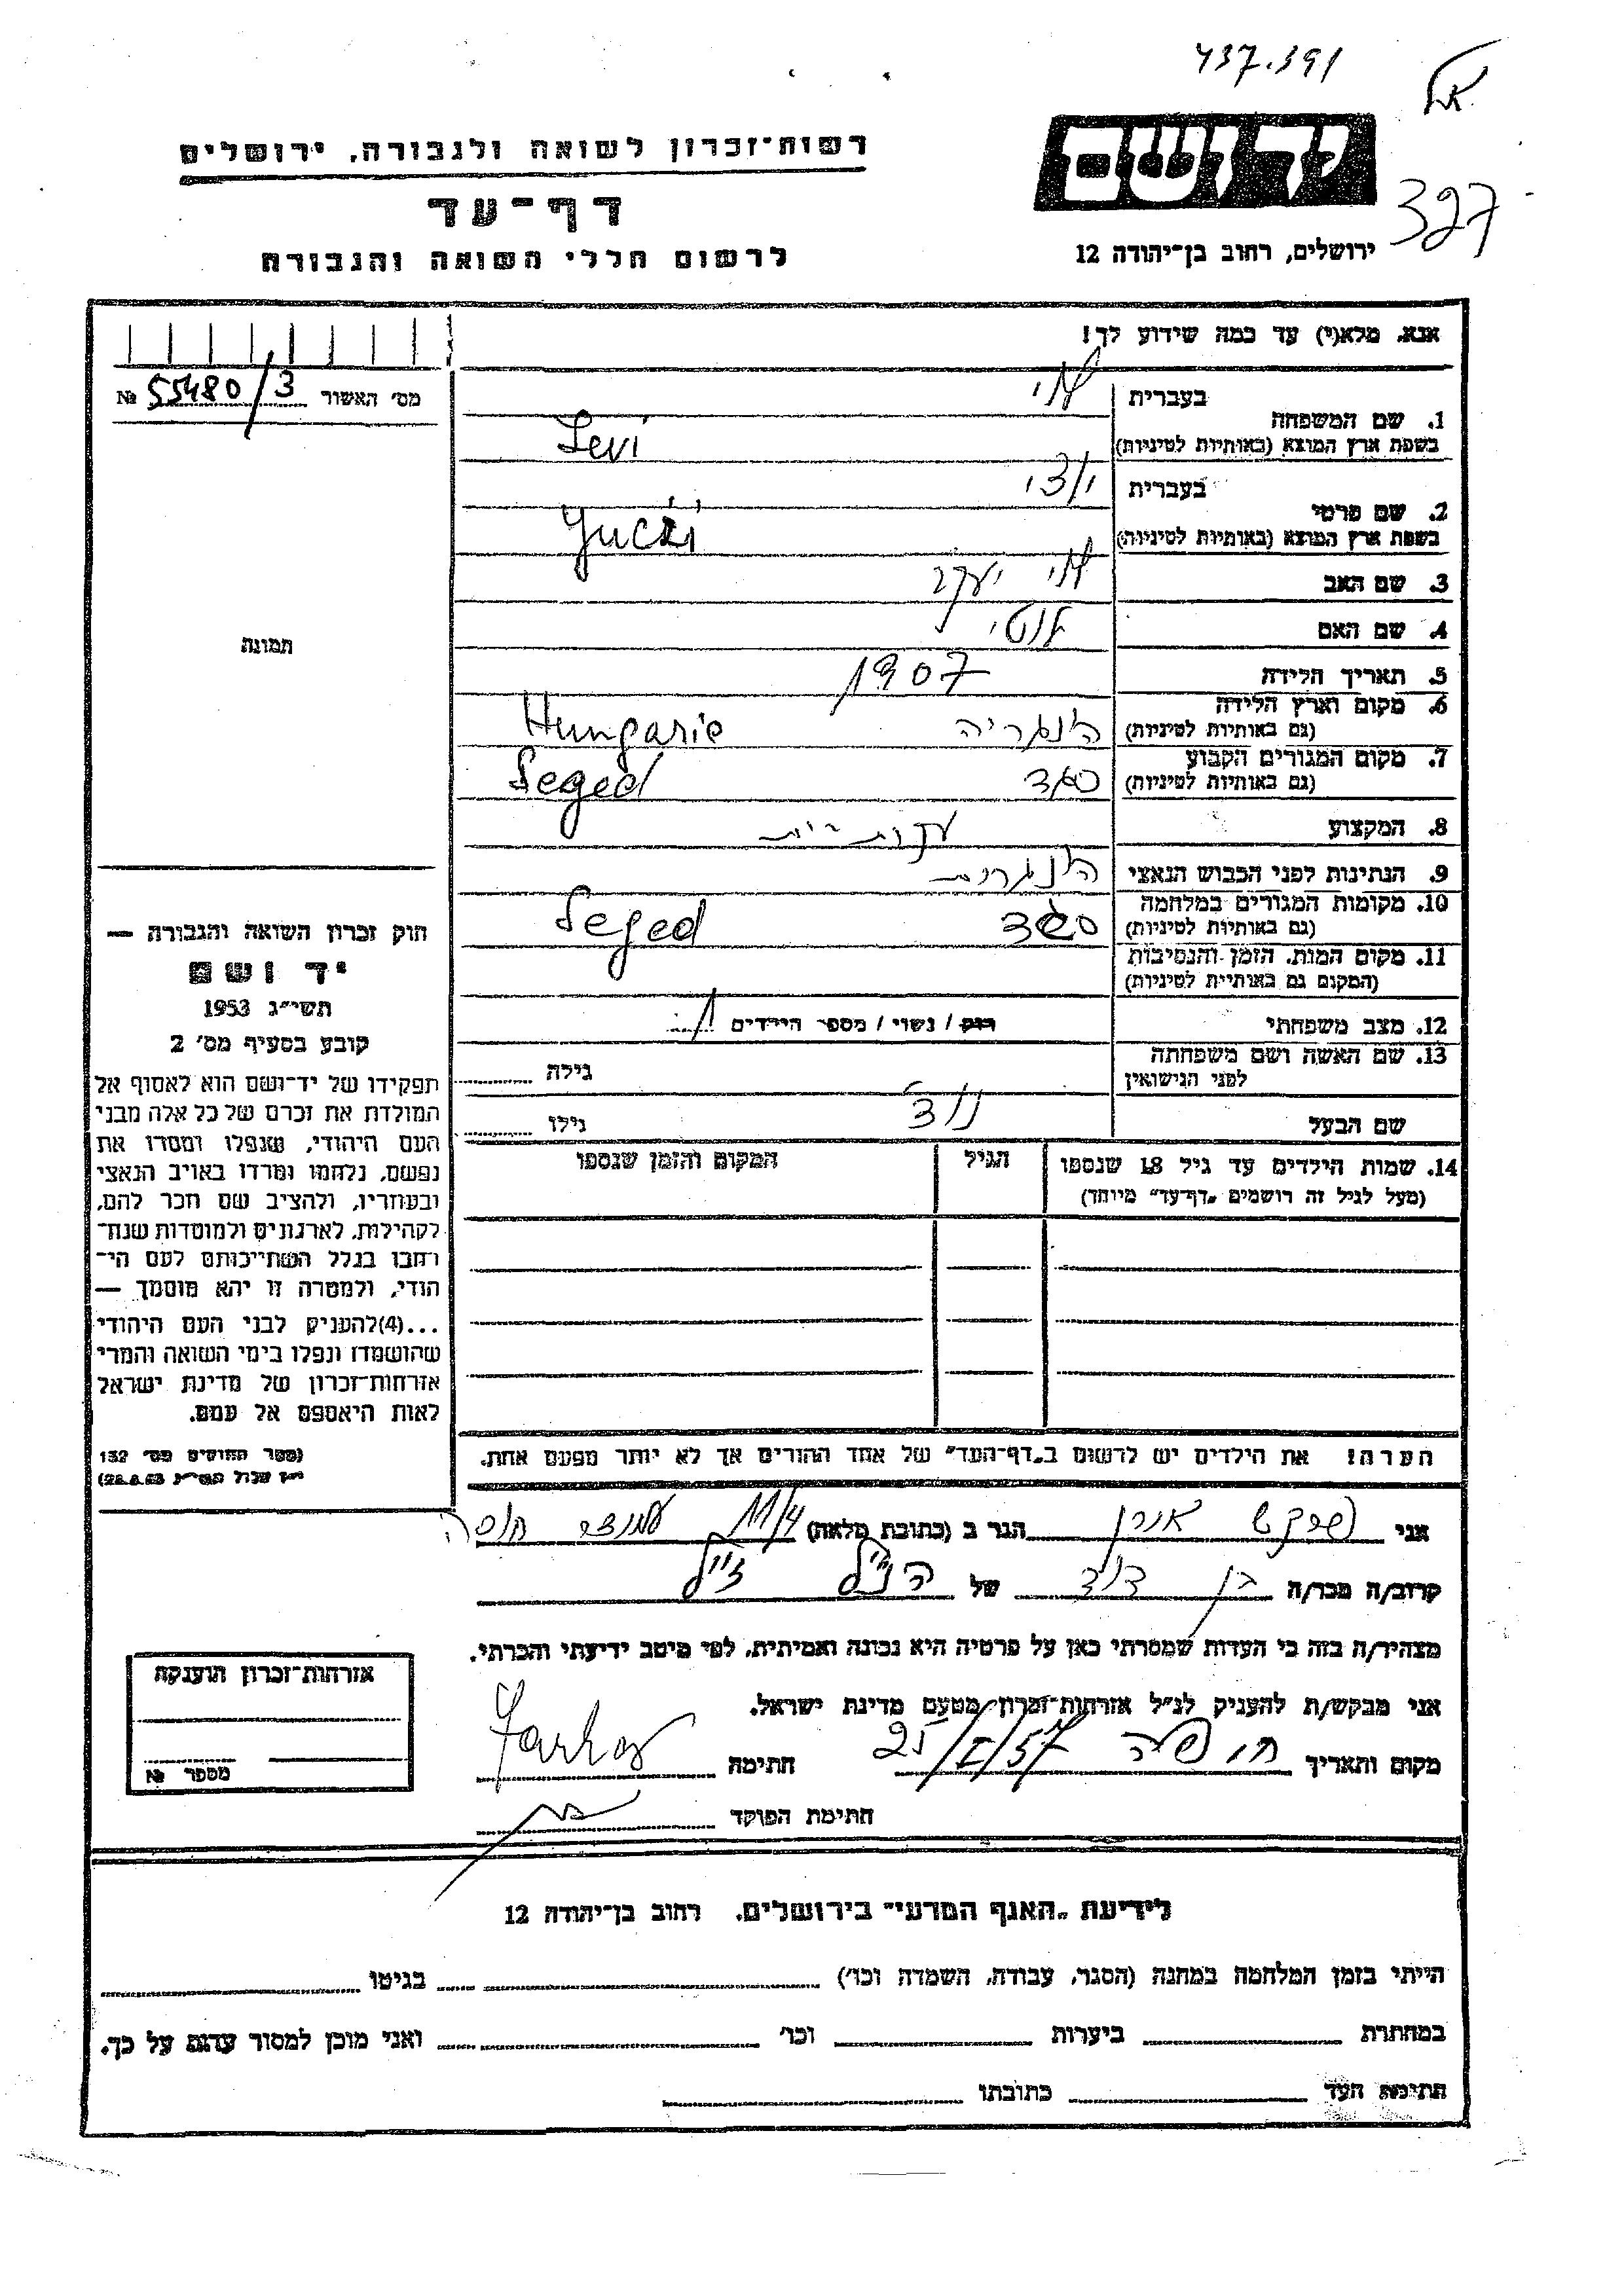 437.391
327
רשות־זכרון לשואה ולגבורה, ירושלים
יד ושם
דף־עד
ירושלים, רחוב בן־יהודה 12
לרשום חללי השואה והגבורה
אנא, מלא(י) עד כמה שידוע לך!
מס׳ האשור 55480/3 №
1. שם המשפחה
בעברית לוי
בשפת ארץ המוצא (באותיות לטיניות) Levi
2. שם פרטי
בעברית יוצי
בשפת ארץ המוצא (באותיות לטיניות) Jucži
3. שם האב לוי יעקב
4. שם האם
תמונה
5. תאריך הלידה 1907
6. מקום וארץ הלידה הונגריה Hungarie
(גם באותיות לטיניות)
7. מקום המגורים הקבוע סגד Seged
(גם באותיות לטיניות)
8. המקצוע עקרת בית
9. הנתינות לפני הכבוש הנאצי הונגרית
10. מקומות המגורים במלחמה סגד Seged
(גם באותיות לטיניות)
11. מקום המות, הזמן והנסיבות
(המקום גם באותיות לטיניות)
12. מצב משפחתי רווק / נשוי / מספר הילדים 1
13. שם האשה ושם משפחתה
לפני הנישואין
גילה
שם הבעל
גילו
14. שמות הילדים עד גיל 18 שנספו
(מעל לגיל זה רושמים „דף־עד” מיוחד)
הגיל
המקום והזמן שנספו
הערה! את הילדים יש לרשום ב„דף־העד” של אחד ההורים אך לא יותר מפעם אחת.
חוק זכרון השואה והגבורה —
יד ושם
תשי״ג 1953
קובע בסעיף מס׳ 2
תפקידו של יד־ושם הוא לאסוף אל
המולדת את זכרם של כל אלה מבני
העם היהודי, שנפלו ומסרו את
נפשם, נלחמו ומרדו באויב הנאצי
ובעוזריו, ולהציב שם וזכר להם,
לקהילות, לארגונים ולמוסדות שנח־
רבו בגלל השתייכותם לעם הי־
הודי, ולמטרה זו יהא מוסמך —
...(4)להעניק לבני העם היהודי
שהושמדו ונפלו בימי השואה והמרי
אזרחות־זכרון של מדינת ישראל
לאות היאספם אל עמם.
(ספר החוקים מס׳ 132
אני פרקש אהרן הגר ב (כתובת מלאה) חיפה
קרוב/ה מכר/ה בן דוד של הנ״ל ז״ל
מצהיר/ה בזה כי העדות שמסרתי כאן על פרטיה היא נכונה ואמיתית, לפי מיטב ידיעתי והכרתי.
אני מבקש/ת להעניק לנ״ל אזרחות־זכרון מטעם מדינת ישראל.
מקום ותאריך חיפה 25/I/57 חתימה Farkas
חתימת הפוקד
אזרחות־זכרון הוענקה
מספר №
לידיעת „האגף המדעי” בירושלים, רחוב בן־יהודה 12
הייתי בזמן המלחמה במחנה (הסגר, עבודה, השמדה וכו׳) בגיטו
במחתרת ביערות וכו׳ ואני מוכן למסור עדות על כך.
חתימת העד כתובתו